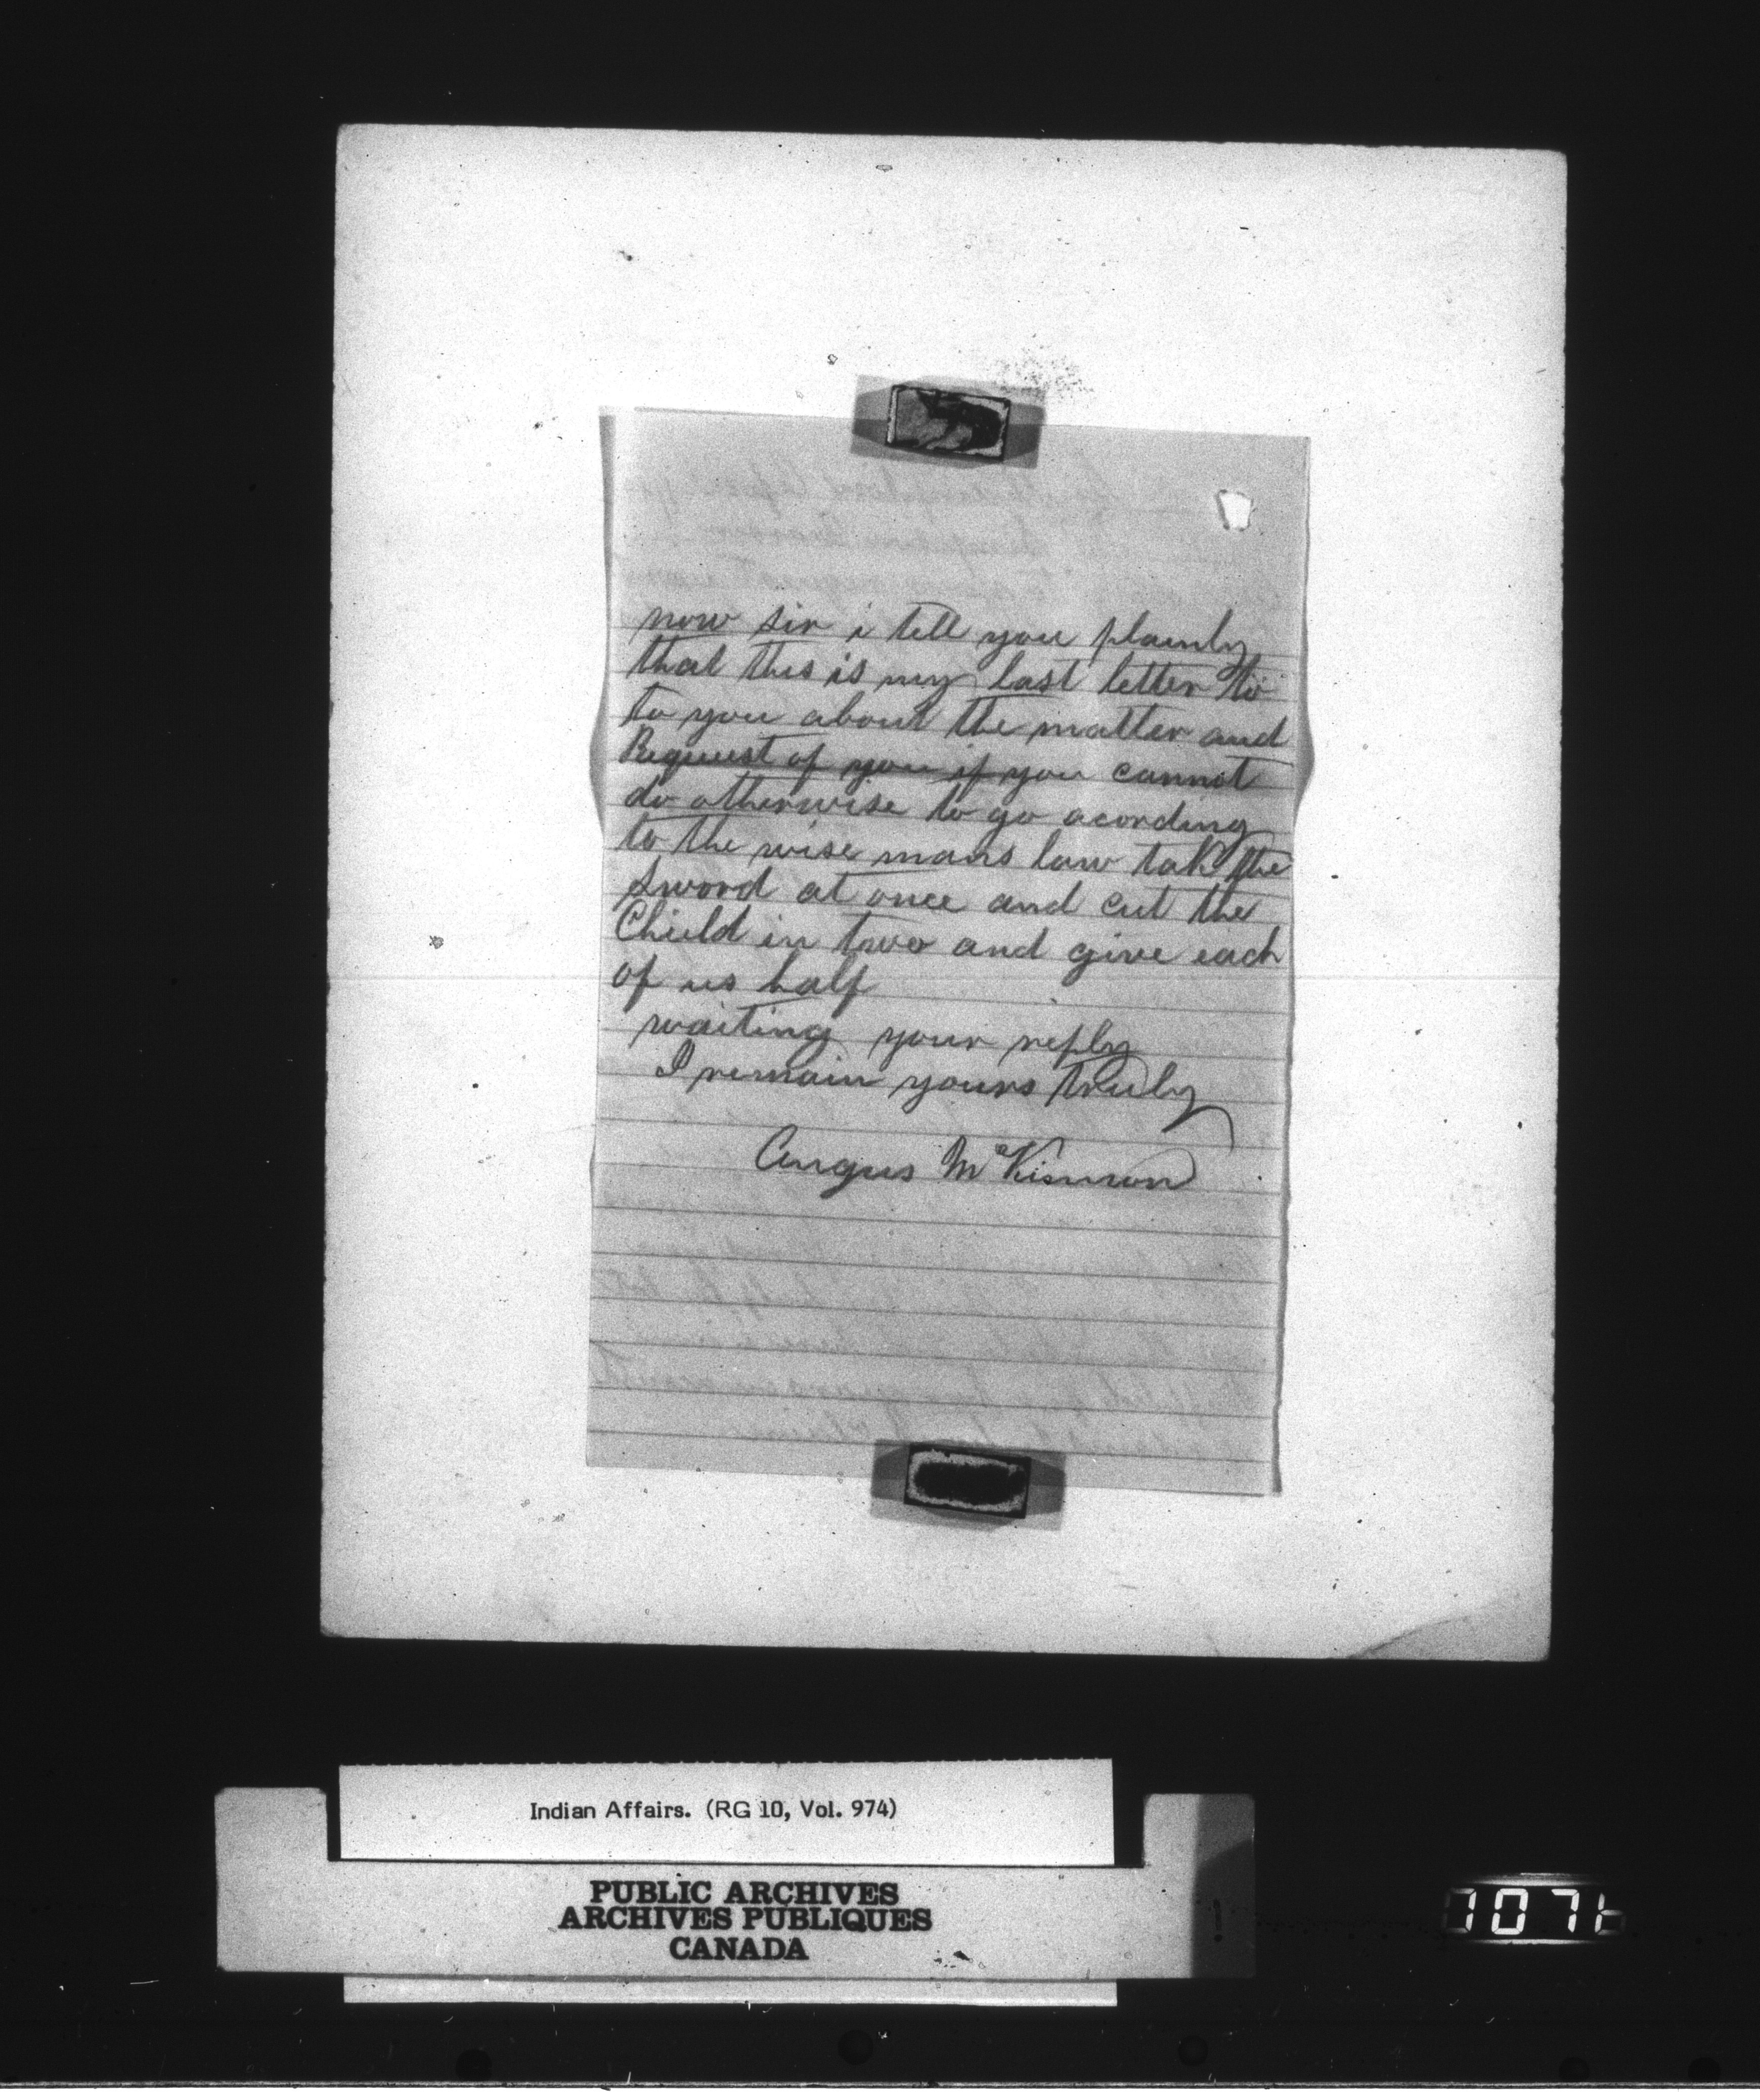 now sir i tell you plainly
that this is my last letter to
to you about the matter and
Request of you if you cannot
do otherwise to go acording
to the wise mans law take the
Sword at once and cut the
Chield in two and give each
of us half
waiting your reply
I remain yours truly
Angus McKinnon
Indian Affairs. (RG 10, Vol. 974)
PUBLIC ARCHIVES
ARCHIVES PUBLIQUES
CANADA